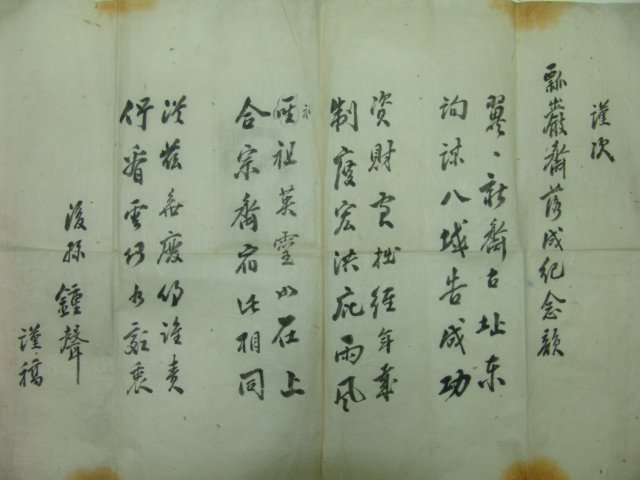 謹次
瓢巖齋落成紀念韻
翼〻新齋古址東
詢謀八域告成功
資財拙經年歲
制度宏洪庇雨風
祖英靈如在上
合宗齋宿此相同
從茲無廢伊誰責
看雲仍永衷
後孫鍾聲
謹稿